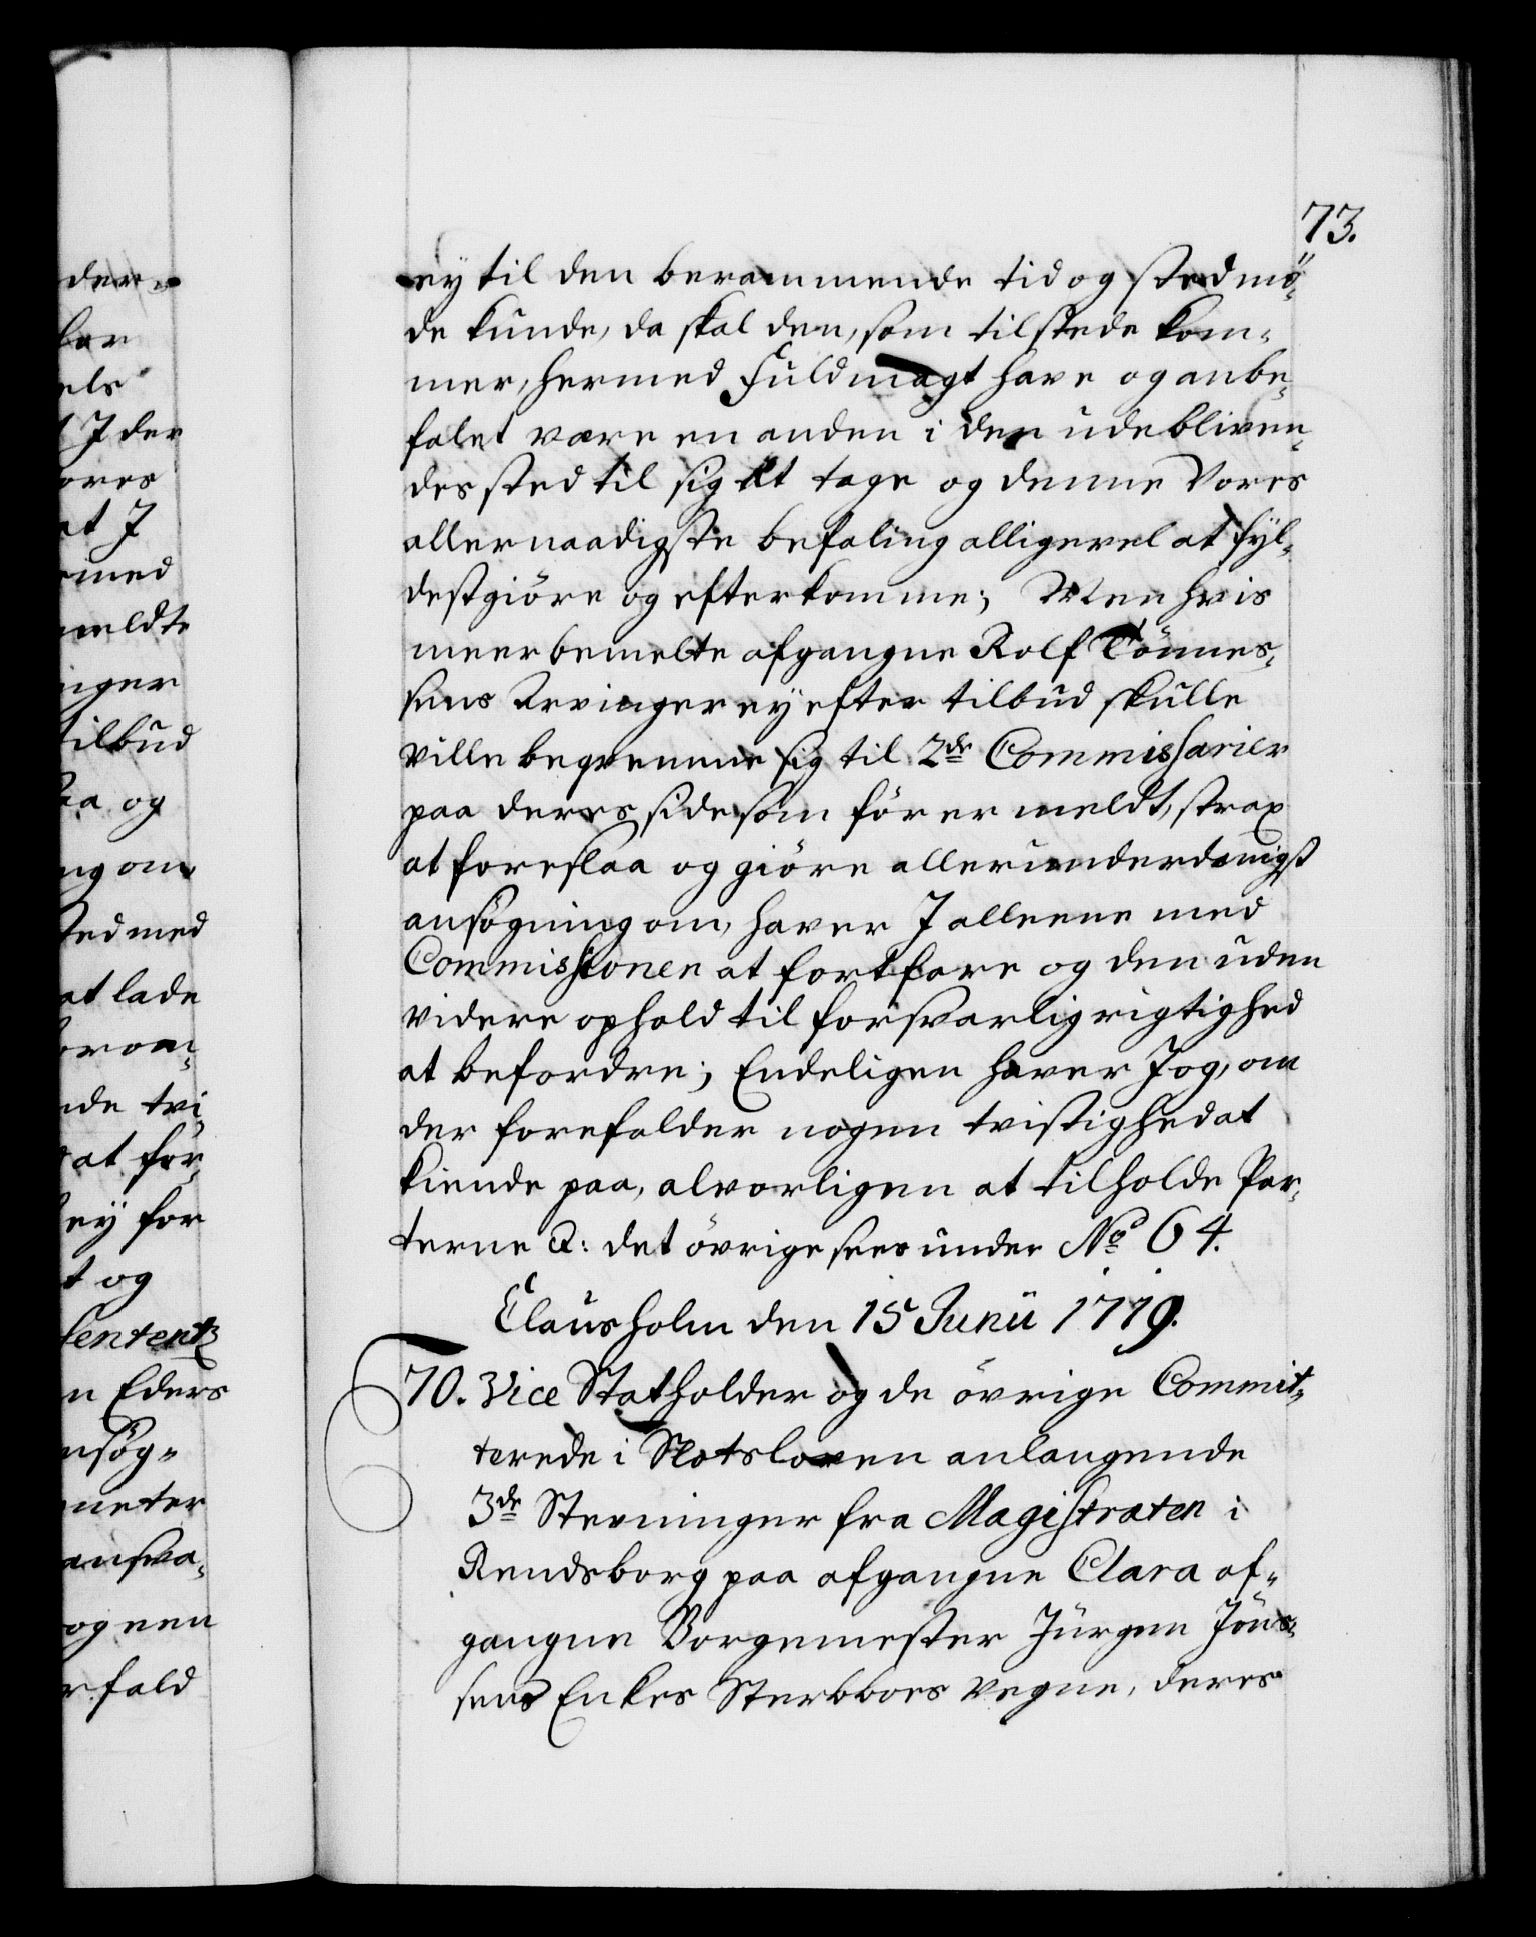 73.
ey til den berammende tid og sted mö¬
de kunde, da skal den, som tilstede kom¬
mer, hermed Fuldmagt have og anbe¬
falet være en anden i den udebliven¬
des sted til sig at tage og denne Vores
allernaadigste befaling alligevel at fyl¬
destgiöre og efterkomme; Men hvis
meerbemelte afgangne Rolf Tönnes¬
sens Arvinger ey efter tilbud skulle
ville beqvemme sig til 2de Commissarier
paa deres side som för er meldt, strax
at foreslaa og giöre allerunderdanigst
ansögning om, haver I alleene med
Commissionen at fortfare og den uden
videre ophold til forsvarlig rigtighed
at befordre; Endeligen haver I og, om
der forefalder nogen tvistighed at
kiende paa, alvorligen at tilholde Par¬
terne &: det övrige sees under No 64.
Clausholm den 15 Junii 1719.
70. Vice Statholder og de övrige Commit¬
terede i Slotsloven anlangende
3de Stevninger fra Magistraten i
Rendsborg paa afgangne Clara af¬
gangne Borgemester Jürgen Jöns¬
sens Enkes Sterbboes vegne, deres
der¬
for
els
I der
ores
at I
med
meldte
inger
tilbud
aa og
ng om
sted med
at lade
orom¬
nde tvi
at for¬
ey for
t og
Sententz
n Eders
nsög¬
meter
ansva¬
og een
rfald